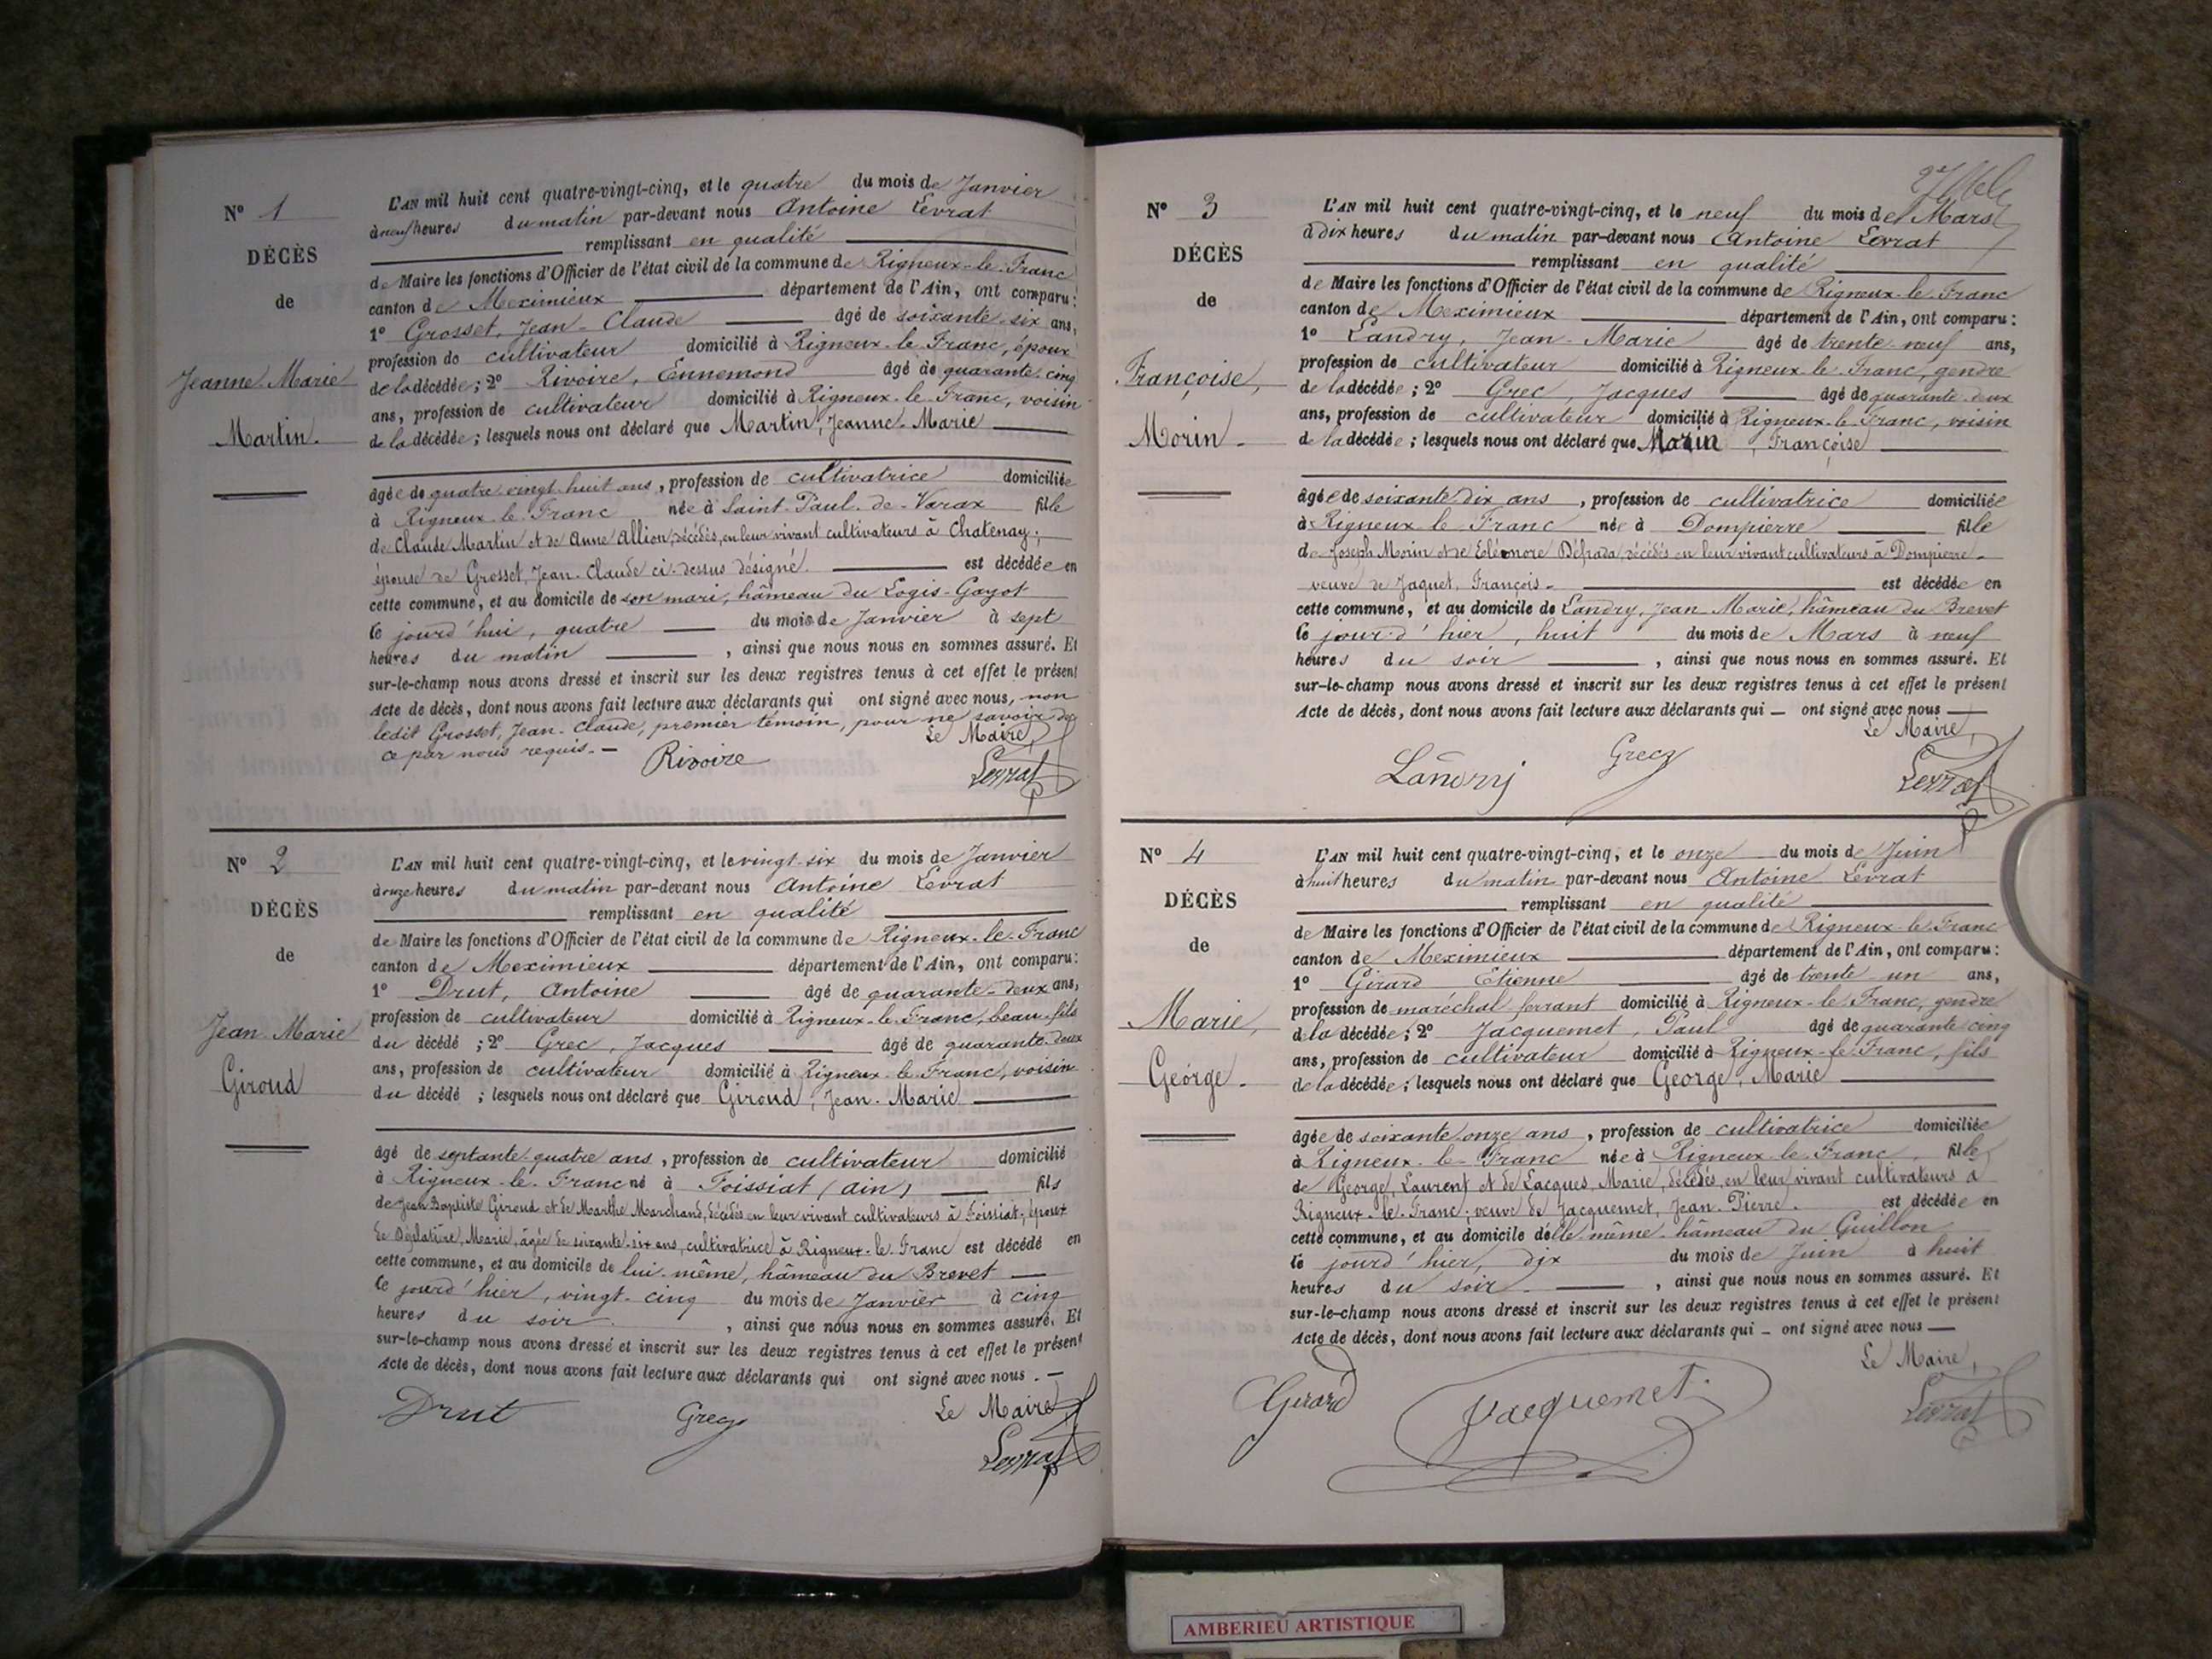 N° 1
DÉCÈS
de
Jeanne-Marie
Martin.
L'AN mil huit cent quatre-vingt-cinq, et le quatre du mois de Janvier
à neuf heures du matin par-devant nous Antoine Levrat
remplissant en qualité
de Maire les fonctions d'Officier de l'état civil de la commune de Rigneux-le-Franc
canton de Meximieux département de l'Ain, ont comparu :
1° Grosset, Jean-Claude âgé de soixante-six ans,
profession de cultivateur domicilié à Rigneux-le-Franc, époux
de la décédée ; 2° Rivoire, Ennemond âgé de quarante-cinq
ans, profession de cultivateur domicilié à Rigneux-le-Franc, voisin
de la décédée ; lesquels nous ont déclaré que Martin, Jeanne-Marie
âgée de quatre-vingt-huit ans, profession de cultivatrice domiciliée
à Rigneux-le-Franc née à Saint-Paul-de-Varax fille
de Claude Martin et de Anne Allion, décédés, en leur vivant cultivateurs à Chatenay ;
épouse de Grosset, Jean-Claude ci-dessus désigné. est décédée en
cette commune, et au domicile de son mari, hâmeau du Logis-Gayot
le jourd'hui, quatre du mois de Janvier à sept
heures du matin , ainsi que nous nous en sommes assuré. Et
sur-le-champ nous avons dressé et inscrit sur les deux registres tenus à cet effet le présent
Acte de décès, dont nous avons fait lecture aux déclarants qui ont signé avec nous, non
ledit Grosset, Jean-Claude, premier témoin, pour ne savoir de
ce par nous requis. —
Le Maire,
Rivoire
Levrat
N° 2
DÉCÈS
de
Jean-Marie
Giroud
L'AN mil huit cent quatre-vingt-cinq, et le vingt-six du mois de Janvier
à onze heures du matin par-devant nous Antoine Levrat
remplissant en qualité
de Maire les fonctions d'Officier de l'état civil de la commune de Rigneux-le-Franc
canton de Meximieux département de l'Ain, ont comparu :
1° Drut, Antoine âgé de quarante-deux ans,
profession de cultivateur domicilié à Rigneux-le-Franc, beau-fils
du décédé ; 2° Grec, Jacques âgé de quarante-deux
ans, profession de cultivateur domicilié à Rigneux-le-Franc, voisin
du décédé ; lesquels nous ont déclaré que Giroud, Jean-Marie
âgé de septante-quatre ans, profession de cultivateur domicilié
à Rigneux-le-Franc né à Foissiat (Ain) fils
de Jean Baptiste Giroud et de Marthe Marchand, décédés en leur vivant cultivateurs à Foissiat ; époux
de Marie, âgée de soixante-six ans, cultivatrice à Rigneux-le-Franc est décédé en
cette commune, et au domicile de lui-même, hâmeau du Brevet —
le jourd'hier, vingt-cinq du mois de Janvier à cinq
heures du soir , ainsi que nous nous en sommes assuré. Et
sur-le-champ nous avons dressé et inscrit sur les deux registres tenus à cet effet le présent
Acte de décès, dont nous avons fait lecture aux déclarants qui ont signé avec nous. —
Le Maire,
Drut
Grec
Levrat
N° 3
DÉCÈS
de
Françoise,
Morin.
L'AN mil huit cent quatre-vingt-cinq, et le neuf du mois de Mars
à dix heures du matin par-devant nous Antoine Levrat
remplissant en qualité
de Maire les fonctions d'Officier de l'état civil de la commune de Rigneux-le-Franc
canton de Meximieux département de l'Ain, ont comparu :
1° Landry, Jean-Marie âgé de trente-neuf ans,
profession de cultivateur domicilié à Rigneux-le-Franc, gendre
de la décédée ; 2° Grec, Jacques âgé de quarante-deux
ans, profession de cultivateur domicilié à Rigneux-le-Franc, voisin
de la décédée ; lesquels nous ont déclaré que Morin, Françoise
âgée de soixante-dix ans, profession de cultivatrice domiciliée
à Rigneux-le-Franc née à Dompierre fille
de Joseph Morin et de Eléonore décédés en leur vivant cultivateurs à Dompierre.
veuve de Jaquet, François. est décédée en
cette commune, et au domicile de Landry, Jean-Marie, hâmeau du Brevet
le jour d'hier, huit du mois de Mars à neuf
heures du soir , ainsi que nous nous en sommes assuré. Et
sur-le-champ nous avons dressé et inscrit sur les deux registres tenus à cet effet le présent
Acte de décès, dont nous avons fait lecture aux déclarants qui — ont signé avec nous —
Le Maire,
Landry
Grec
Levrat
N° 4
DÉCÈS
de
Marie,
George.
L'AN mil huit cent quatre-vingt-cinq, et le onze du mois de Juin
à huit heures du matin par-devant nous Antoine Levrat
remplissant en qualité
de Maire les fonctions d'Officier de l'état civil de la commune de Rigneux-le-Franc
canton de Meximieux département de l'Ain, ont comparu :
1° Girard Etienne âgé de trente-un ans,
profession de maréchal ferrant domicilié à Rigneux-le-Franc, gendre
de la décédée ; 2° Jacquemet, Paul âgé de quarante-cinq
ans, profession de cultivateur domicilié à Rigneux-le-Franc, fils
de la décédée ; lesquels nous ont déclaré que George, Marie
âgée de soixante-onze ans, profession de cultivatrice domiciliée
à Rigneux-le-Franc née à Rigneux-le-Franc, fille
de George, Laurent et de Lacques, Marie, décédés, en leur vivant cultivateurs à
Rigneux-le-Franc ; veuve de Jacquemet, Jean-Pierre. est décédée en
cette commune, et au domicile d'elle-même, hâmeau du Guillon
le jourd'hier, dix du mois de Juin à huit
heures du soir. , ainsi que nous nous en sommes assuré. Et
sur-le-champ nous avons dressé et inscrit sur les deux registres tenus à cet effet le présent
Acte de décès, dont nous avons fait lecture aux déclarants qui — ont signé avec nous —
Le Maire,
Girard
Jacquemet
Levrat
AMBERIEU ARTISTIQUE